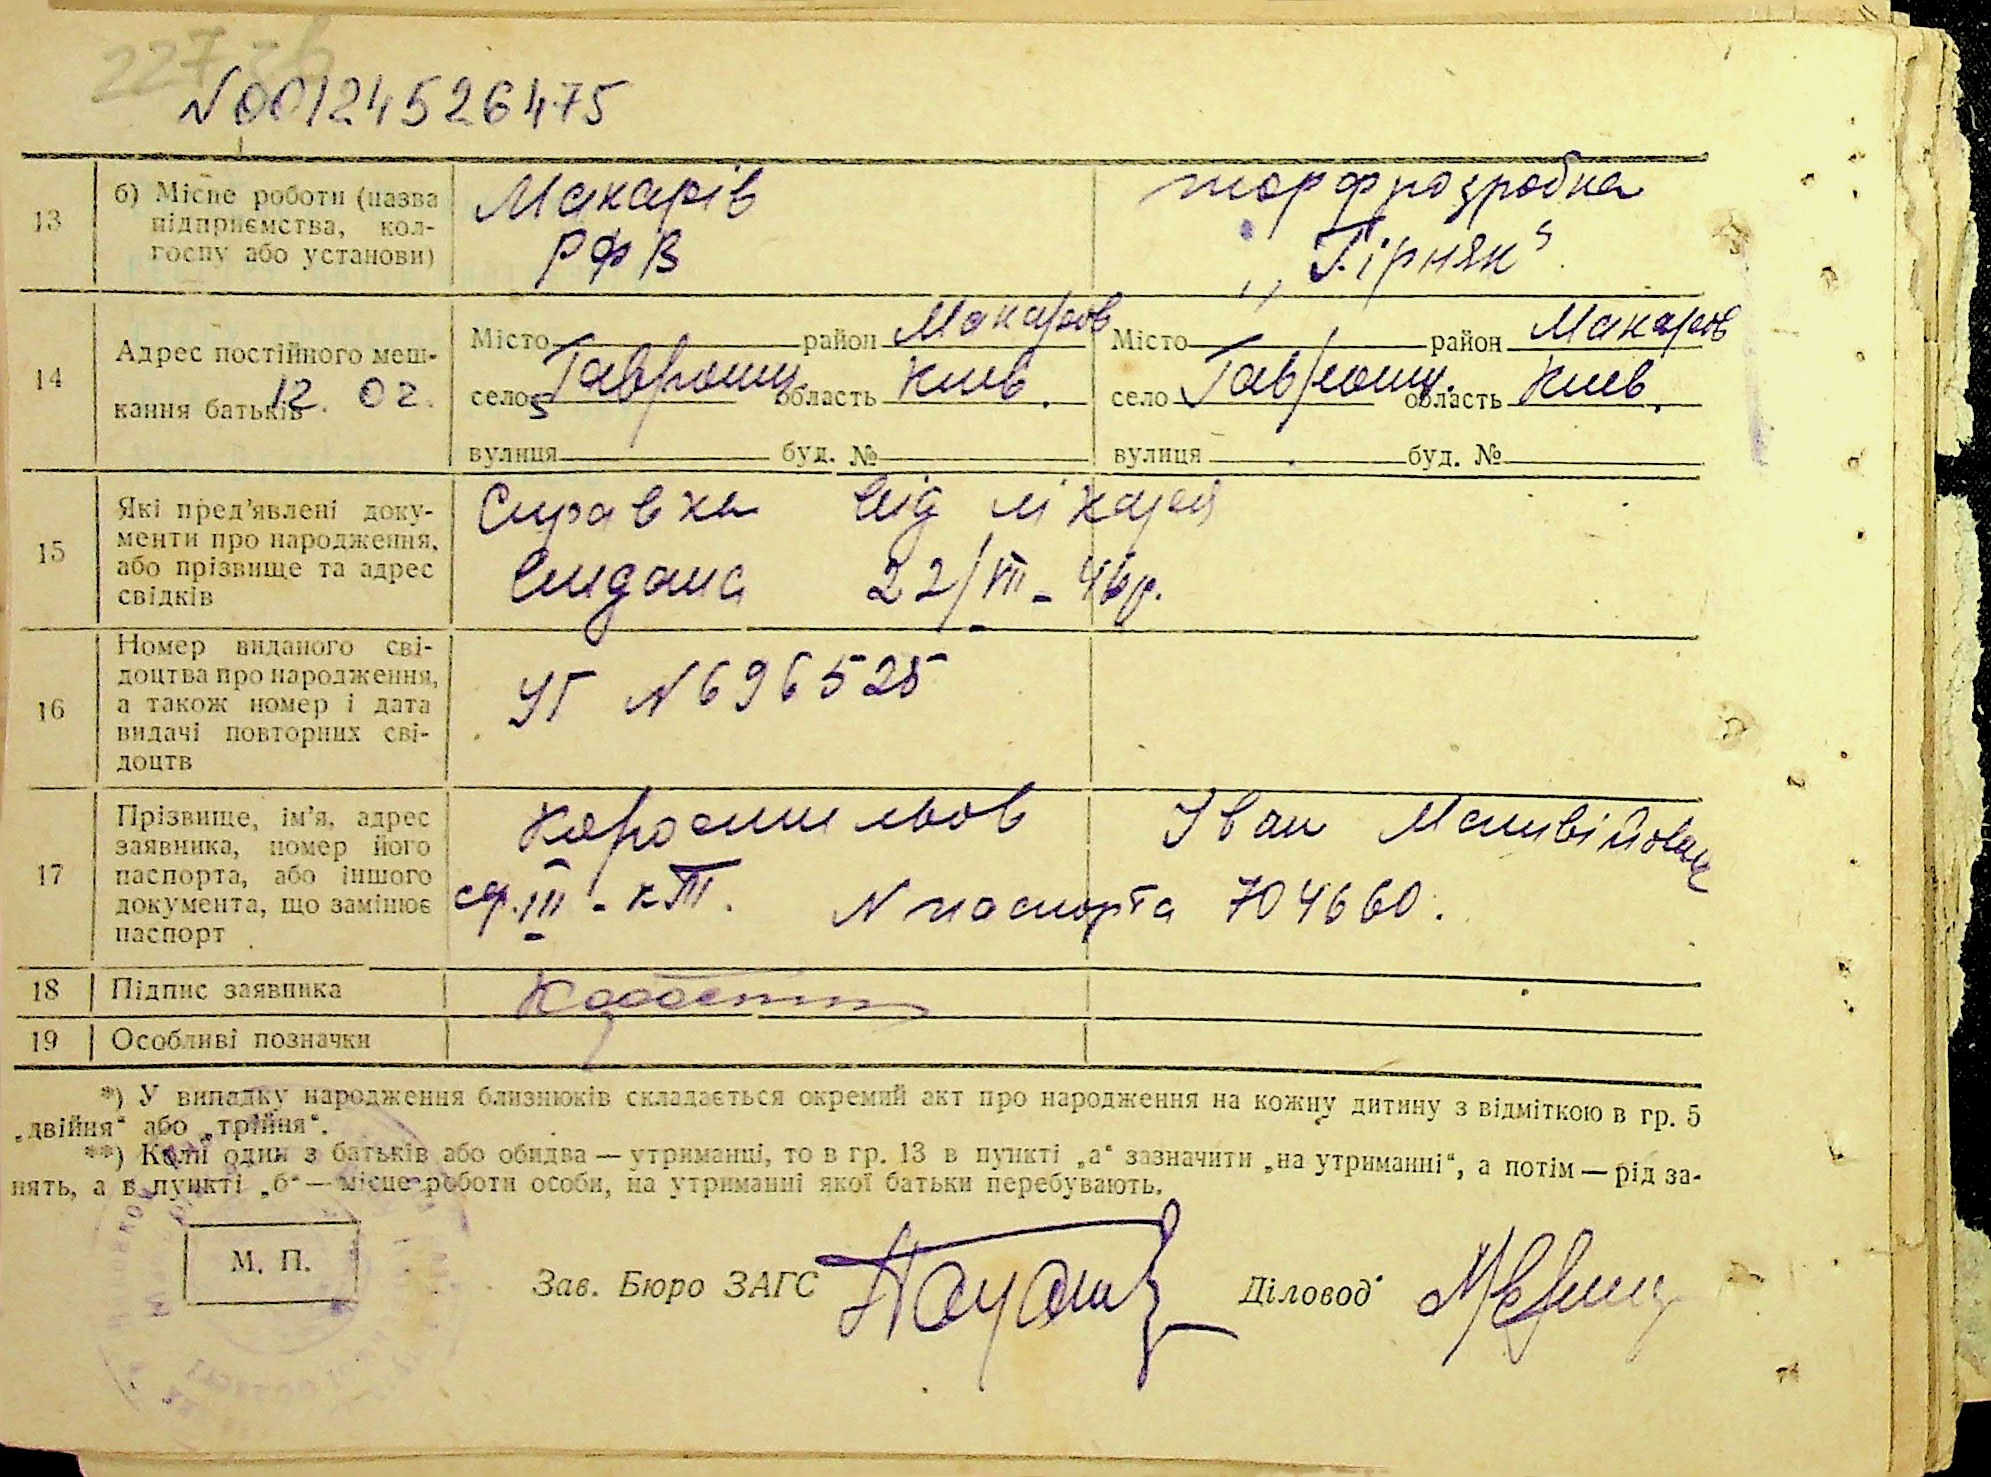 227 зв
N00124526475
13 б) Місце роботи (назва підприємства, колгоспу або установи)
Макарів
РФВ
торфрозробка
„Гірняк“
14 Адрес постійного мешкання батьків
12. 02.
Місто район Макаров
село Гавронщ. область Київ.
вулиця буд. №
Місто район Макаров
село Гавронщ. область Київ.
вулиця буд. №
15 Які пред’явлені документи про народження, або прізвище та адрес свідків
Справка від лікаря
видана 22/VII - 46р.
16 Номер виданого свідоцтва про народження, а також номер і дата видачі повторних свідоцтв
УГ N696525
17 Прізвище, ім’я, адрес заявника, номер його паспорта, або іншого документа, що замінює паспорт
Іван Матвійович
N паспорта 704660.
18 Підпис заявника
19 Особливі позначки
*) У випадку народження близнюків складається окремий акт про народження на кожну дитину з відміткою в гр. 5
„двійня“ або „трійня“.
**) Коли один з батьків або обидва — утриманці, то в гр. 13 в пункті „а“ зазначити „на утриманні“, а потім — рід за-
нять, а в пункті „б“ — місце роботи особи, на утриманні якої батьки перебувають.
М. П.
Зав. Бюро ЗАГС
Діловод